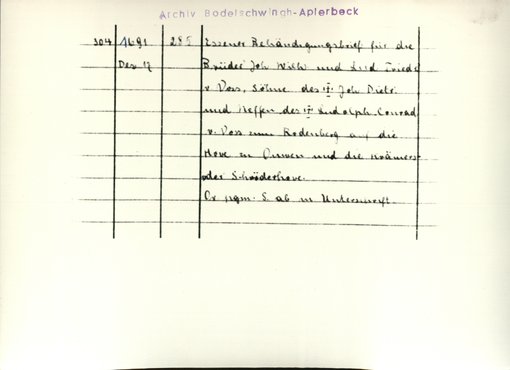 Archiv Bodelschwingh-Aplerbeck
304 1691 285 Essener Behändigungsbrief für die
Dez 17 Brüder Joh Wilh und Friedr
v Voss, Söhne des Joh Dietr
und Neffen des Rudolph Conrad
v. Voss zum Rodenberg auf die
Hove zu und die Krämers
oder Schröderhove.
Or pgm. S. ab m Unterschrift.